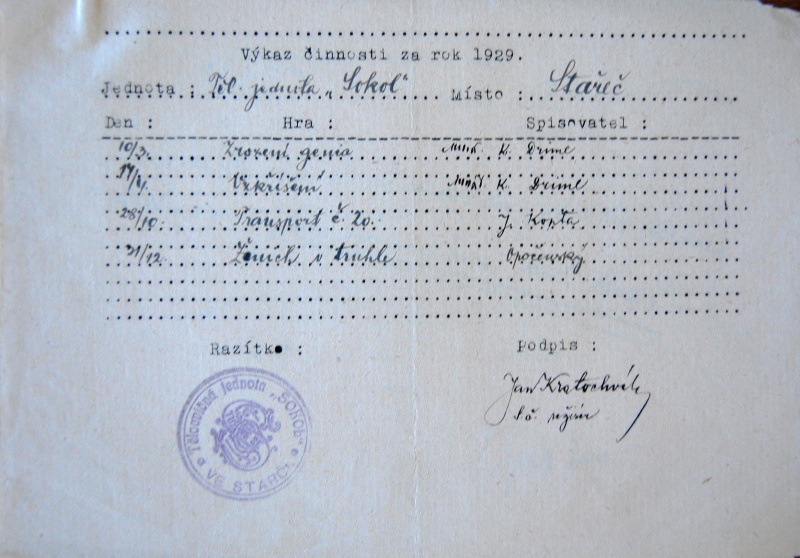 Výkaz činnosti za rok 1929.
Jednota : Těl. jednota „Sokol“ Místo : Stařeč
Den : Hra : Spisovatel :
10/3. Zrození genia K. Driml
17/4. Vzkříšení K. Driml
28/10. Transport č. 20. J. Kopta
31/12. Ženich v truhle Opočenský
Razítko : Podpis :
Jan Kratochvíl
t.č. režisér
Tělocvičná jednota „SOKOL“
VE STARČI